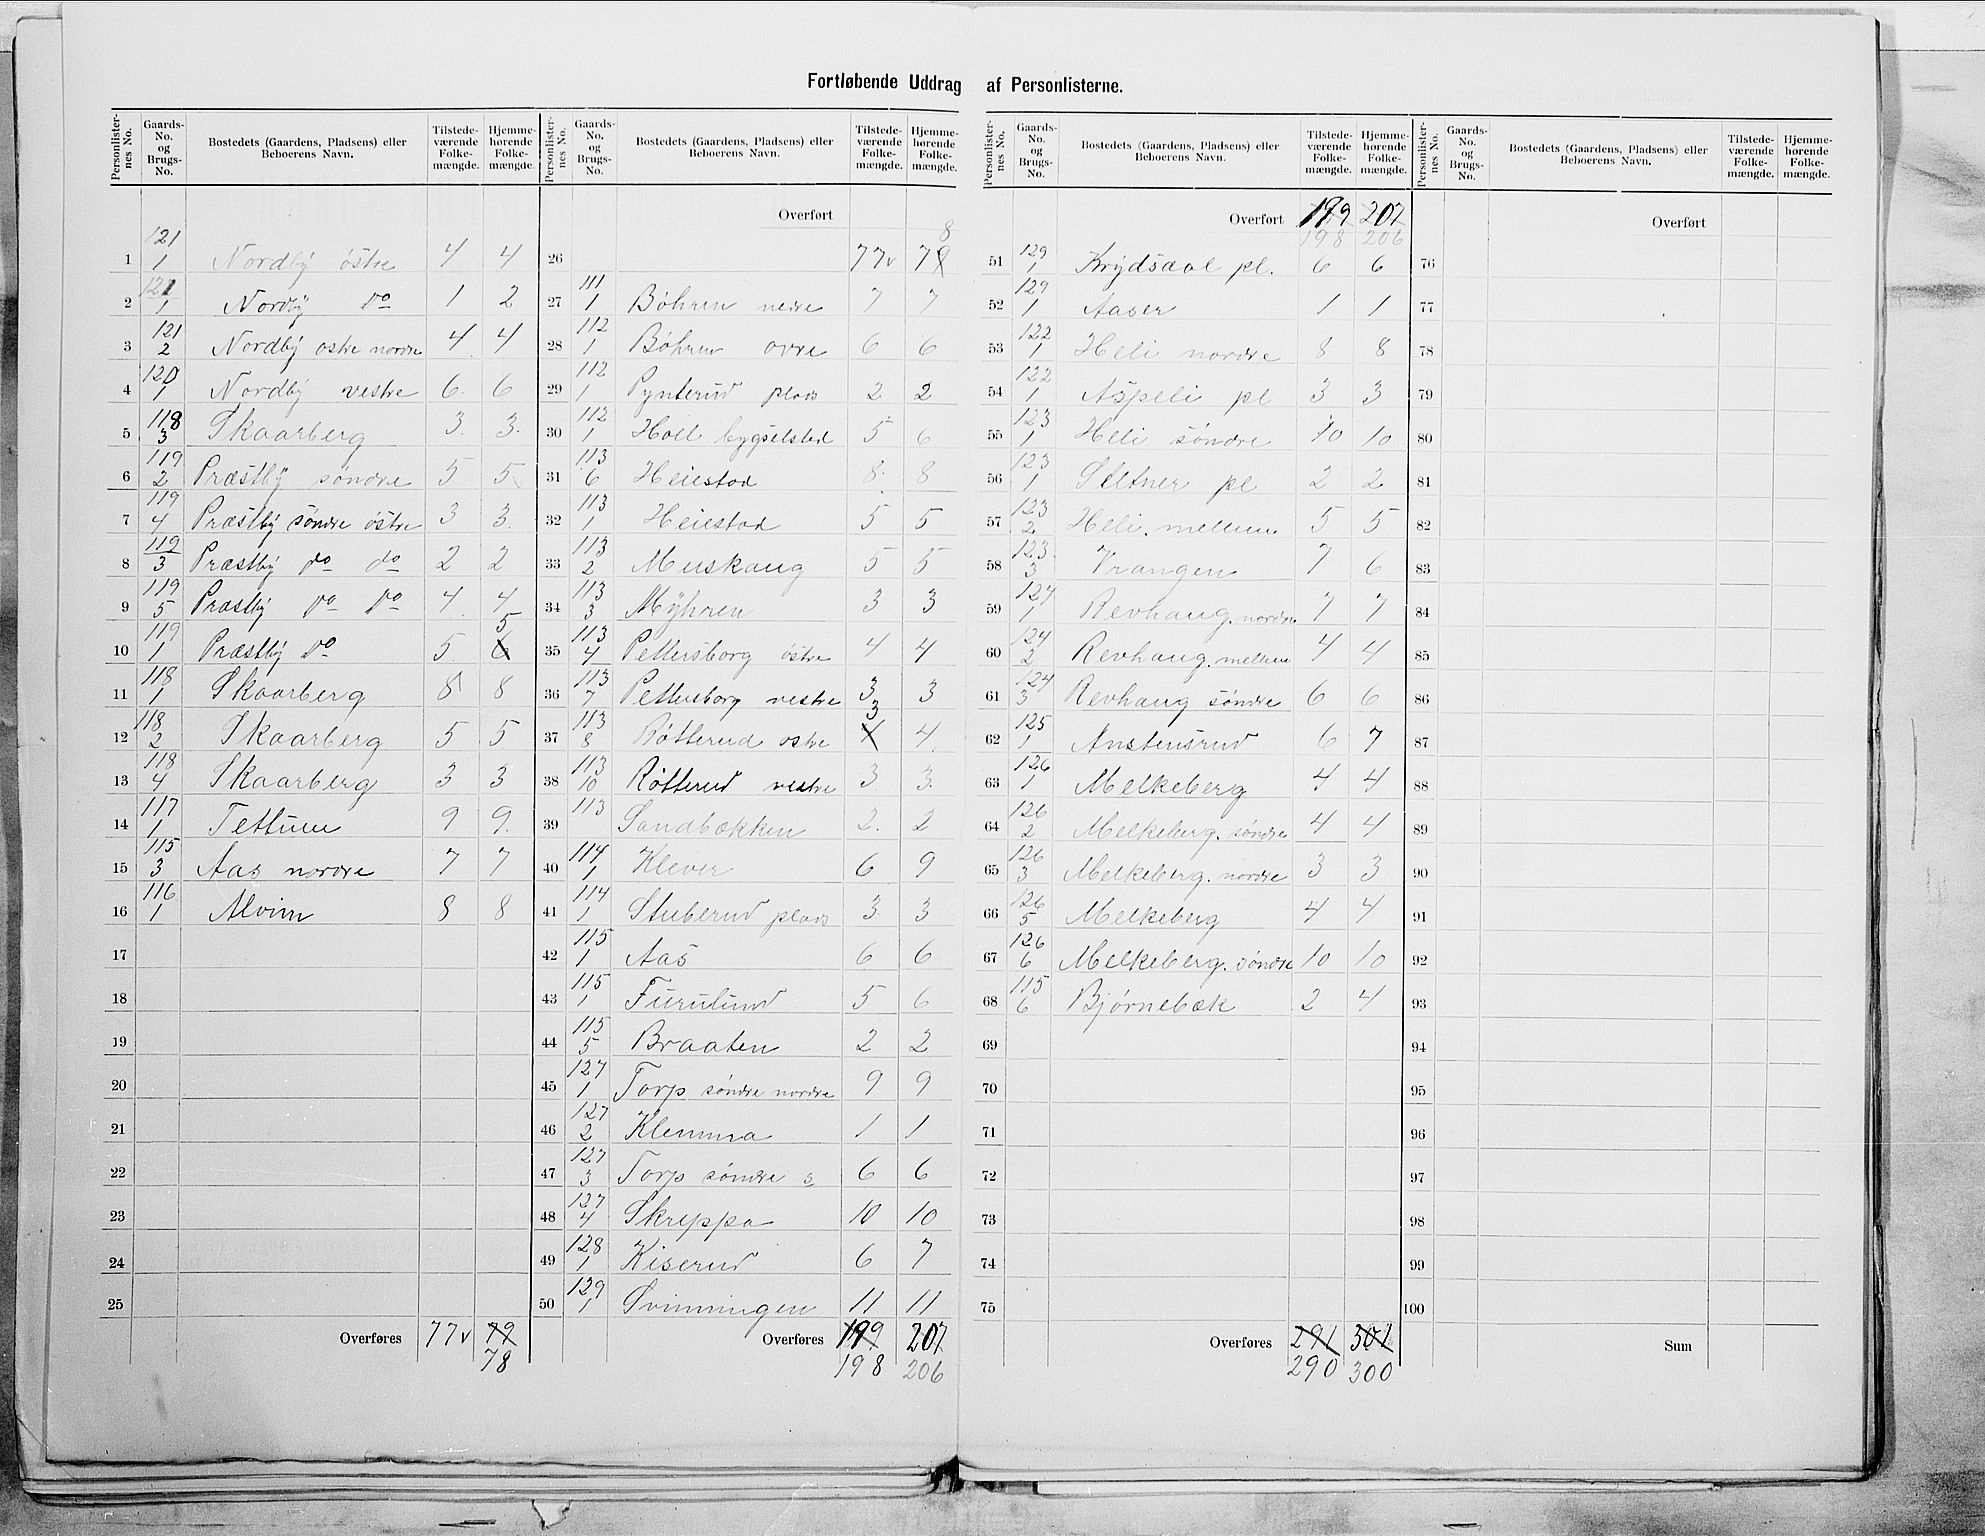 Fortløbende Uddrag af Personlisterne.
Personlisternes No. | Gaards-No. og Brugs-No. | Bostedets (Gaardens, Pladsens) eller Beboerens Navn. | Tilstedeværende Folkemængde. | Hjemmehørende Folkemængde.
1 | 121/1 | Nordby østre | 4 | 4
2 | 121/1 | Nordby do | 1 | 2
3 | 121/2 | Nordby ostre nordre | 4 | 4
4 | 120/1 | Nordby vestre | 6 | 6
5 | 118/3 | Skaarberg | 3 | 3
6 | 119/2 | Præstby søndre | 5 | 5
7 | 119/4 | Præstby søndre østre | 3 | 3
8 | 119/3 | Præstby do do | 2 | 2
9 | 119/5 | Præstby do do | 4 | 4
10 | 119/1 | Præstby do | 5 | 6 5
11 | 118/1 | Skaarberg | 8 | 8
12 | 118/2 | Skaarberg | 5 | 5
13 | 118/4 | Skaarberg | 3 | 3
14 | 117/1 | Tettum | 9 | 9
15 | 115/3 | Aas nordre | 7 | 7
16 | 116/1 | Alvim | 8 | 8
17
18
19
20
21
22
23
24
25
Overføres | 77 v | 79 78
Personlisternes No. | Gaards-No. og Brugs-No. | Bostedets (Gaardens, Pladsens) eller Beboerens Navn. | Tilstedeværende Folkemængde. | Hjemmehørende Folkemængde.
Overført
26 | 77 v | 79 8
27 | 111/1 | Bøhren nedre | 7 | 7
28 | 112/1 | Bøhren ovre | 6 | 6
29 | 112/1 | Pynterud plads | 2 | 2
30 | 112/1 | Holl bygselsted | 5 | 6
31 | 113/6 | Heiestad | 8 | 8
32 | 113/1 | Heiestad | 5 | 5
33 | 113/2 | Muskaug | 5 | 5
34 | 113/3 | Myhren | 3 | 3
35 | 113/4 | Pettersborg østre | 4 | 4
36 | 113/7 | Pettersborg vestre | 3 | 3
37 | 113/8 | Røtterud ostre | 4 3 | 4
38 | 113/10 | Røtterud vestre | 3 | 3
39 | 113 | Sandbækken | 2 | 2
40 | 114/1 | Klever | 6 | 9
41 | 114/1 | Stuberud plads | 3 | 3
42 | 115/1 | Aas | 6 | 6
43 | 115/1 | Furulund | 5 | 6
44 | 115/5 | Braaten | 2 | 2
45 | 127/1 | Torp søndre nordre | 9 | 9
46 | 127/2 | Klemmra | 1 | 1
47 | 127/3 | Torp søndre s | 6 | 6
48 | 127/4 | Skreppa | 10 | 10
49 | 128/1 | Kiserud | 6 | 7
50 | 129/1 | Svinningen | 11 | 11
Overføres | 199 198 | 207 206
Personlisternes No. | Gaards-No. og Brugs-No. | Bostedets (Gaardens, Pladsens) eller Beboerens Navn. | Tilstedeværende Folkemængde. | Hjemmehørende Folkemængde.
Overført | 199 198 | 207 206
51 | 129/1 | Krydsaal pl. | 6 | 6
52 | 129/1 | Aaser | 1 | 1
53 | 122/1 | Heli nordre | 8 | 8
54 | 122/1 | Aspeli pl | 3 | 3
55 | 123/1 | Heli søndre | 10 | 10
56 | 123/1 | Sletner pl | 2 | 2
57 | 123/2 | Heli mellum | 5 | 5
58 | 123/3 | Vrangen | 7 | 6
59 | 124/1 | Revhaug nordre | 7 | 7
60 | 124/2 | Revhaug mellum | 4 | 4
61 | 124/3 | Revhaug søndre | 6 | 6
62 | 125/1 | Anstensrud | 6 | 7
63 | 126/1 | Melkeberg | 4 | 4
64 | 126/2 | Melkeberg søndre | 4 | 4
65 | 126/3 | Melkeberg nordre | 3 | 3
66 | 126/5 | Melkeberg | 4 | 4
67 | 126/6 | Melkeberg søndre | 10 | 10
68 | 115/6 | Bjørnebæk | 2 | 4
69
70
71
72
73
74
75
Overføres | 291 290 | 301 300
Personlisternes No. | Gaards-No. og Brugs-No. | Bostedets (Gaardens, Pladsens) eller Beboerens Navn. | Tilstedeværende Folkemængde. | Hjemmehørende Folkemængde.
Overført
76
77
78
79
80
81
82
83
84
85
86
87
88
89
90
91
92
93
94
95
96
97
98
99
100
Sum